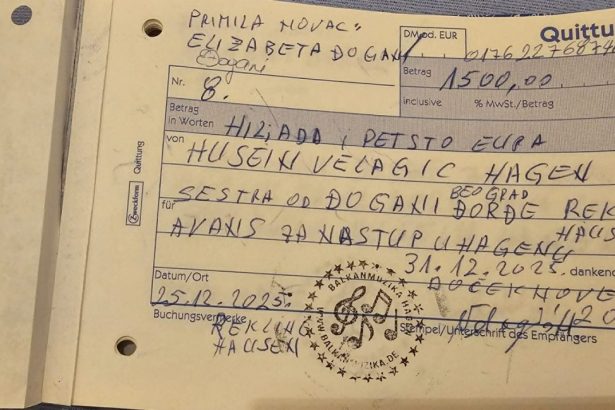 PRIMILA NOVAC"
DM od. EUR
Quittu
ELIZABETA ĐOGANI
Đogani
Nr. 8.
Betrag 1500,00.
inclusive % MwSt./Betrag
Betrag in Worten HILjADU i PETSTO EURA
von HUSEIN VELAGIC HAGEN
SESTRA OD ĐOGANI ĐORĐE REK
BEOGRAD
HAUS
für AVANS ZA NASTUP U HAGENU
31.12.2025. dankend
Datum/Ort
DOČEK NOVE
25.12.2025.
Buchungsvermerke
REKLING
HAUSEN
Stempel/Unterschrift des Empfängers
BALKANMUZIKA HAGEN
WWW.BALKANMUZIKA.DE
Zweckform
Quittung